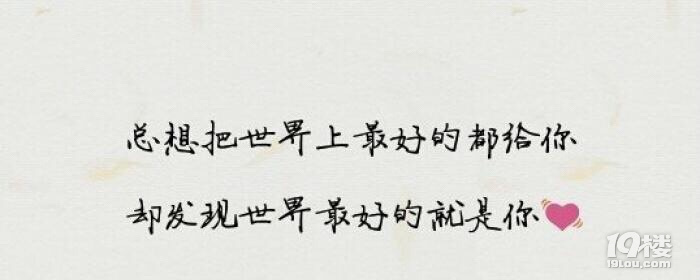 总想把世界上最好的都给你
却发现世界最好的就是你
19楼
19lou.com